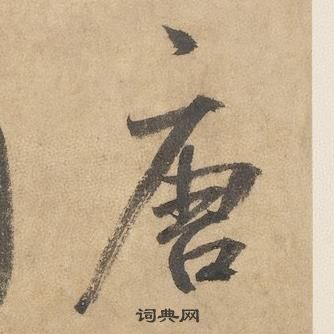 唐
词典网